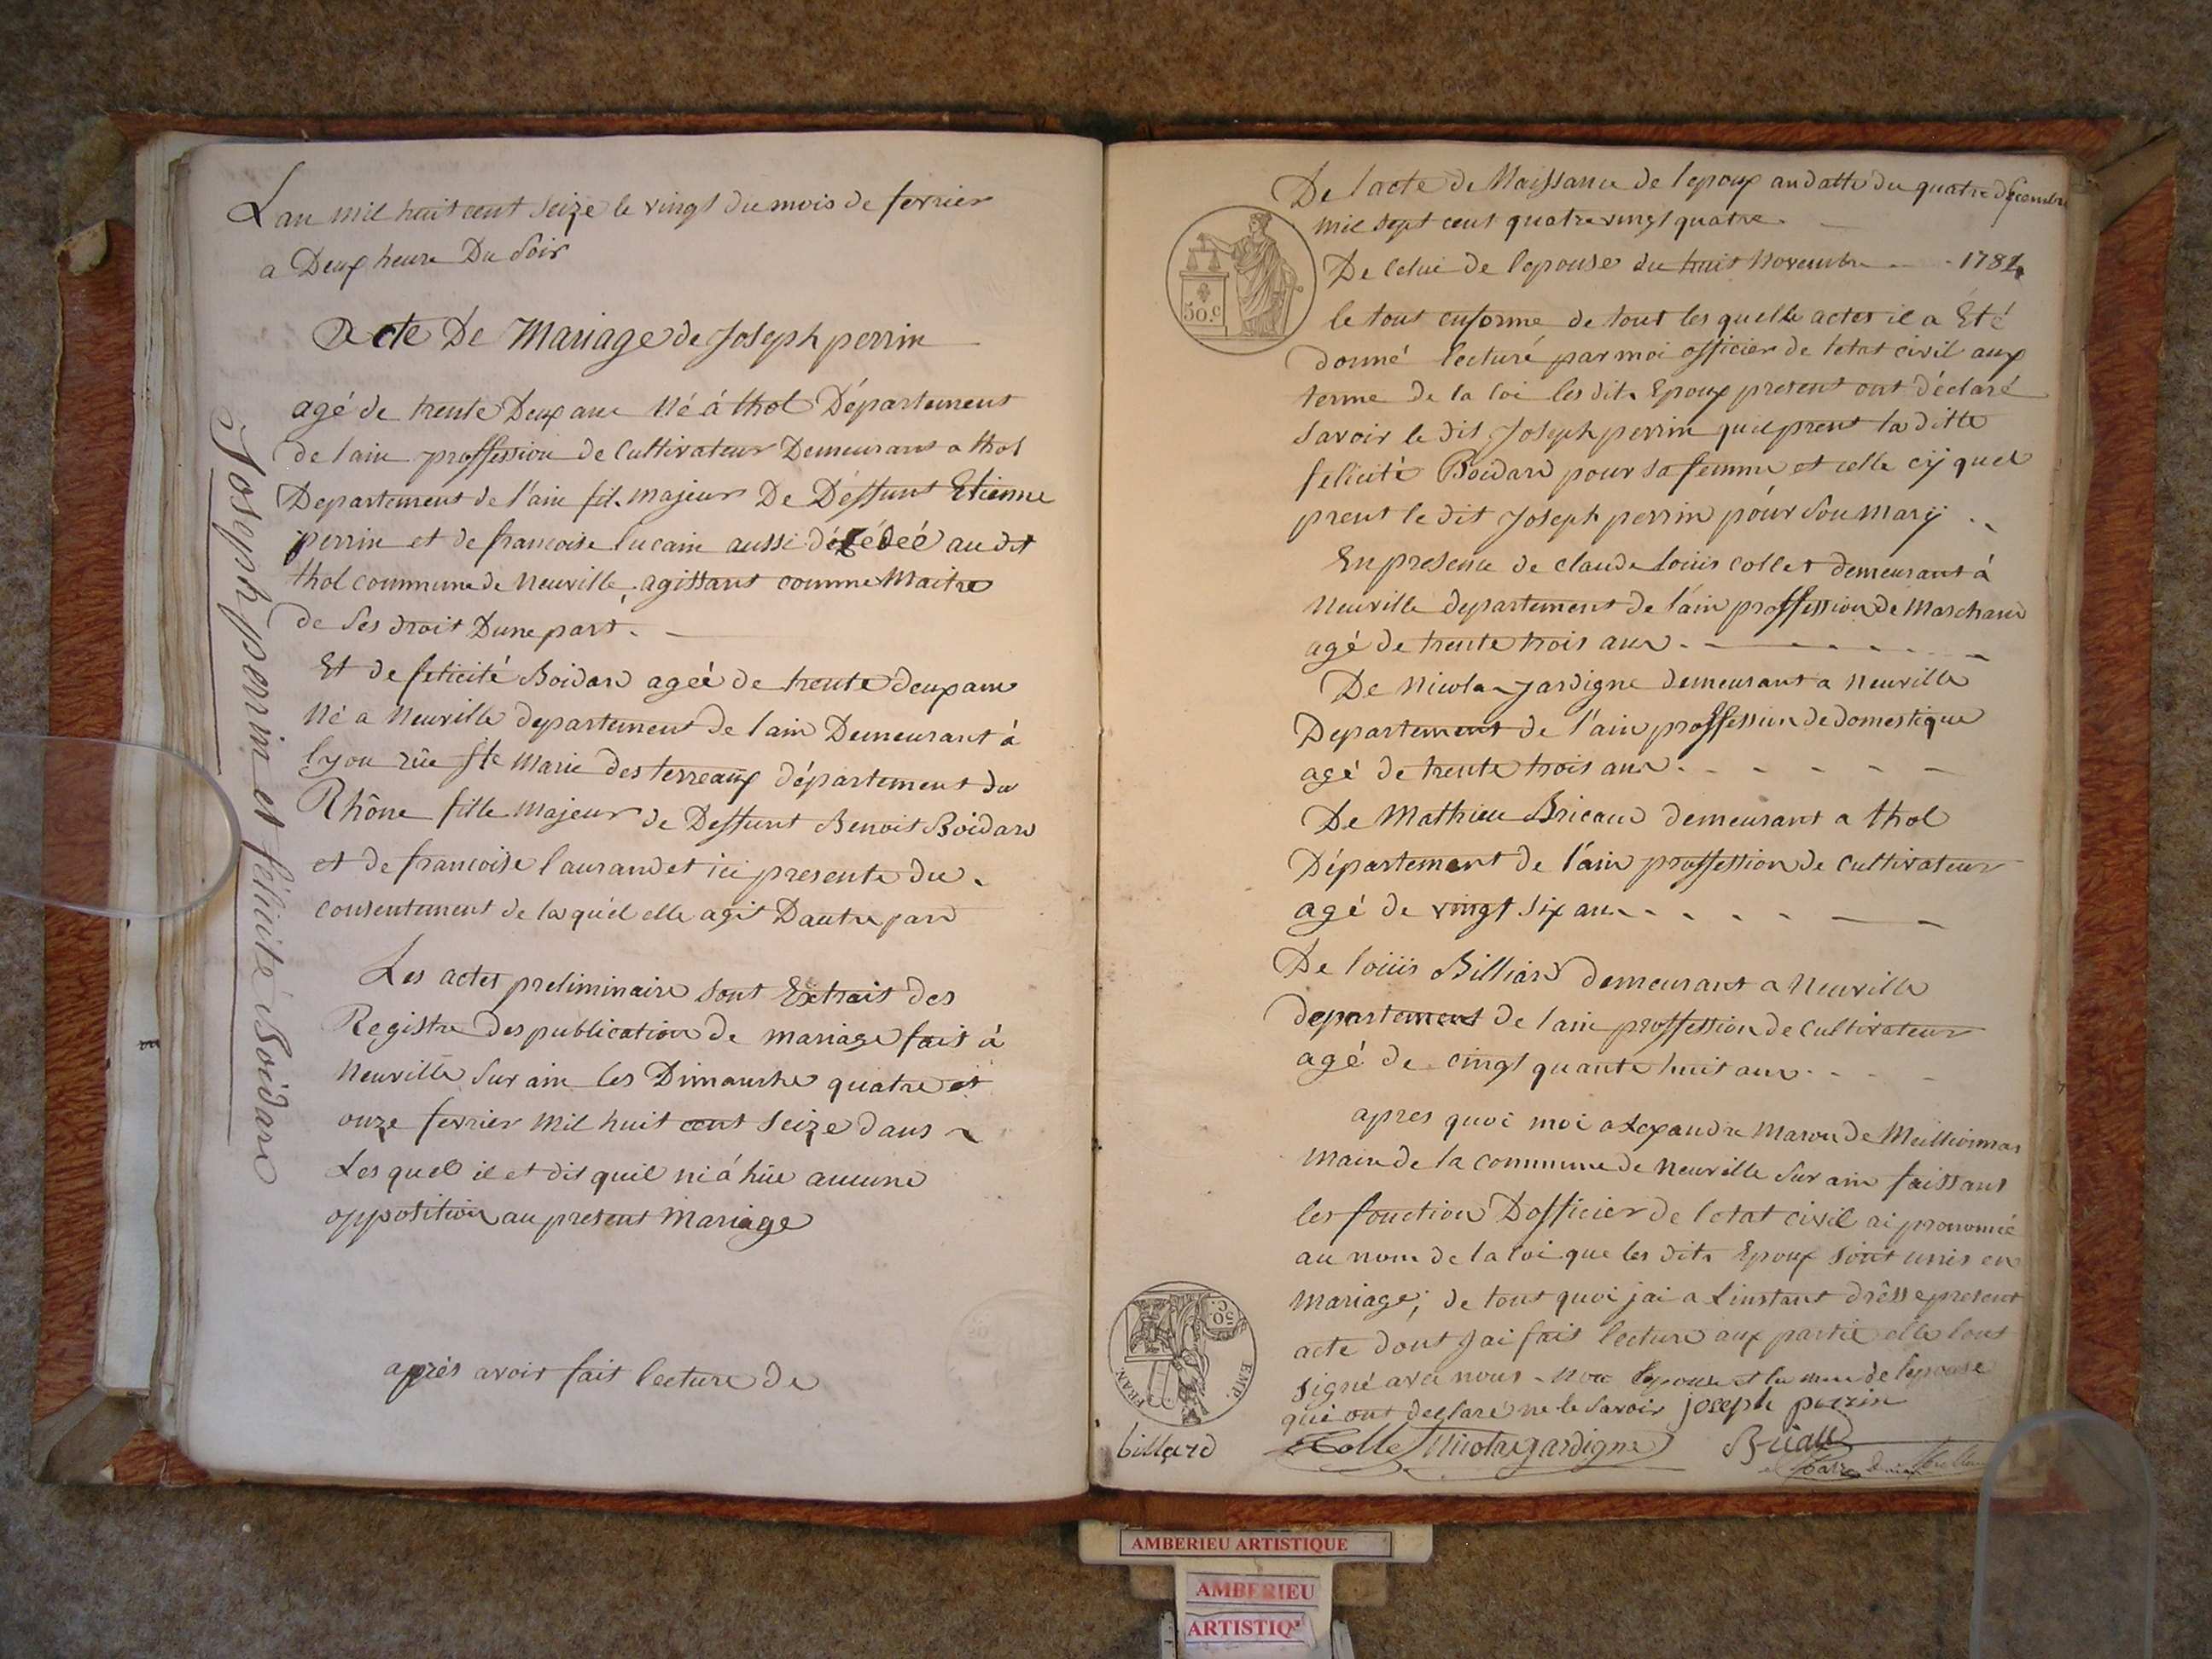 Lan mil huit cent seize le vingt du mois de fevrier
a Deux heure Du Soir
Acte De Mariage de Joseph perrin
agé de trente Deux ans Né á thol Département
de lain proffession de Cultivateur Demeurant a thol
Departement de l'ain fils majeur De Deffunt Etienne
perrin et de francoise lucain aussi décédeé au dit
thol commune de Neuville, agissant comme Maitre
de Ses droit Dune part.
Et de felicité Boidard ageé de trente deux ans
Né a Neuville departement de lain Demeurant à
lyon rüe Ste Marie des terreaux département du
Rhône fille Majeur de Deffunt Benoit Boidard
et de francoise laurandet ici presente du
consentement de laquel elle agit Dautre pard
Les actes preliminaire sont Extrait des
Registre des publication de mariage fait á
Neuville Sur ain les Dimanche quatre et
onze fevrier Mil huit cent Seize dans
Les quel il et dit quil ni á hüe aucune
opposition au present Mariage
aprés avoir fait lecture de
Joseph perrin et félicité Boidard
De lacte de Naissance de lepoux andatte du quatre décembre
mil sept cent quatre vingt quatre
De Celui de lepouse du huit Novembre 1784
50.c
le tout enforme de tout les quelle actes il a Eté
donné lecturé par moi officier de letat civil aux
terme de la loi les dits Epoux present ont déclaré
Savoir le dit Joseph perrin quil prent la ditte
felicité Boidard pour sa femme et celle cÿ quel
prent le dit Joseph perrin póur Son Marÿ
En presence de claude louis collet demeurant á
Neuville departement de láin proffession de Marchand
agé de trente trois ans
De Nicolas jardigne demeurant a Neuville
Departement de l'ain proffession de domestique
agé de trente trois ans
De Mathieu Bricaud demeurant a thol
Département de láin proffession de Cultivateur
agé de vingt six ans
De loüis Billiard demeurant a Neuville
departement de lain proffession de Cultivateur
agé de cingt quante huit ans
apres quoi moi alexandre Maron de Meillionnas
Maire de la commune de Neuville Sur ain faissant
les fonction Dofficier de letat civil ai prononcé
au nom de la loi que les dits Epoux sont unis en
Mariage; de tout quoi jai a Linstant drêsse present
acte dont Jai fait lecture aux partie elle lont
signé avec nous non lepouse et la mere de lepouse
qui ont declaré ne le Savoir joseph perrin
50 C.
FRAN. EMP.
billard Collet Nicolas jardigne Bricaud
AMBERIEU ARTISTIQUE
AMBERIEU
ARTISTIQU